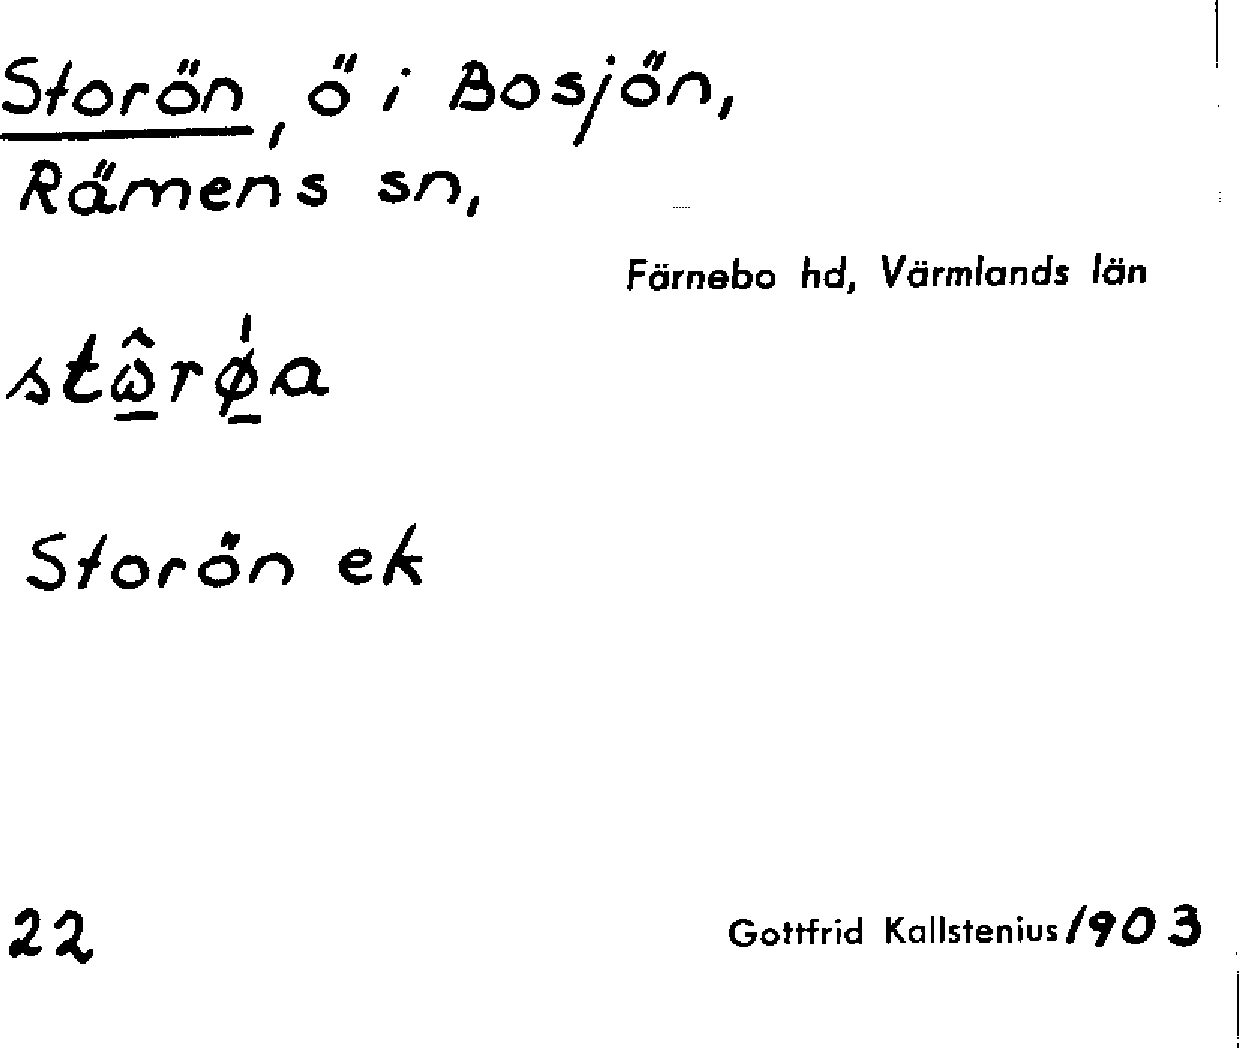 Storön, ö i Bosjön,
Rämens sn,
Färnebo hd, Värmlands län
stω̲̂rø̲̍a
Storön ek
22
Gottfrid Kallstenius 1903